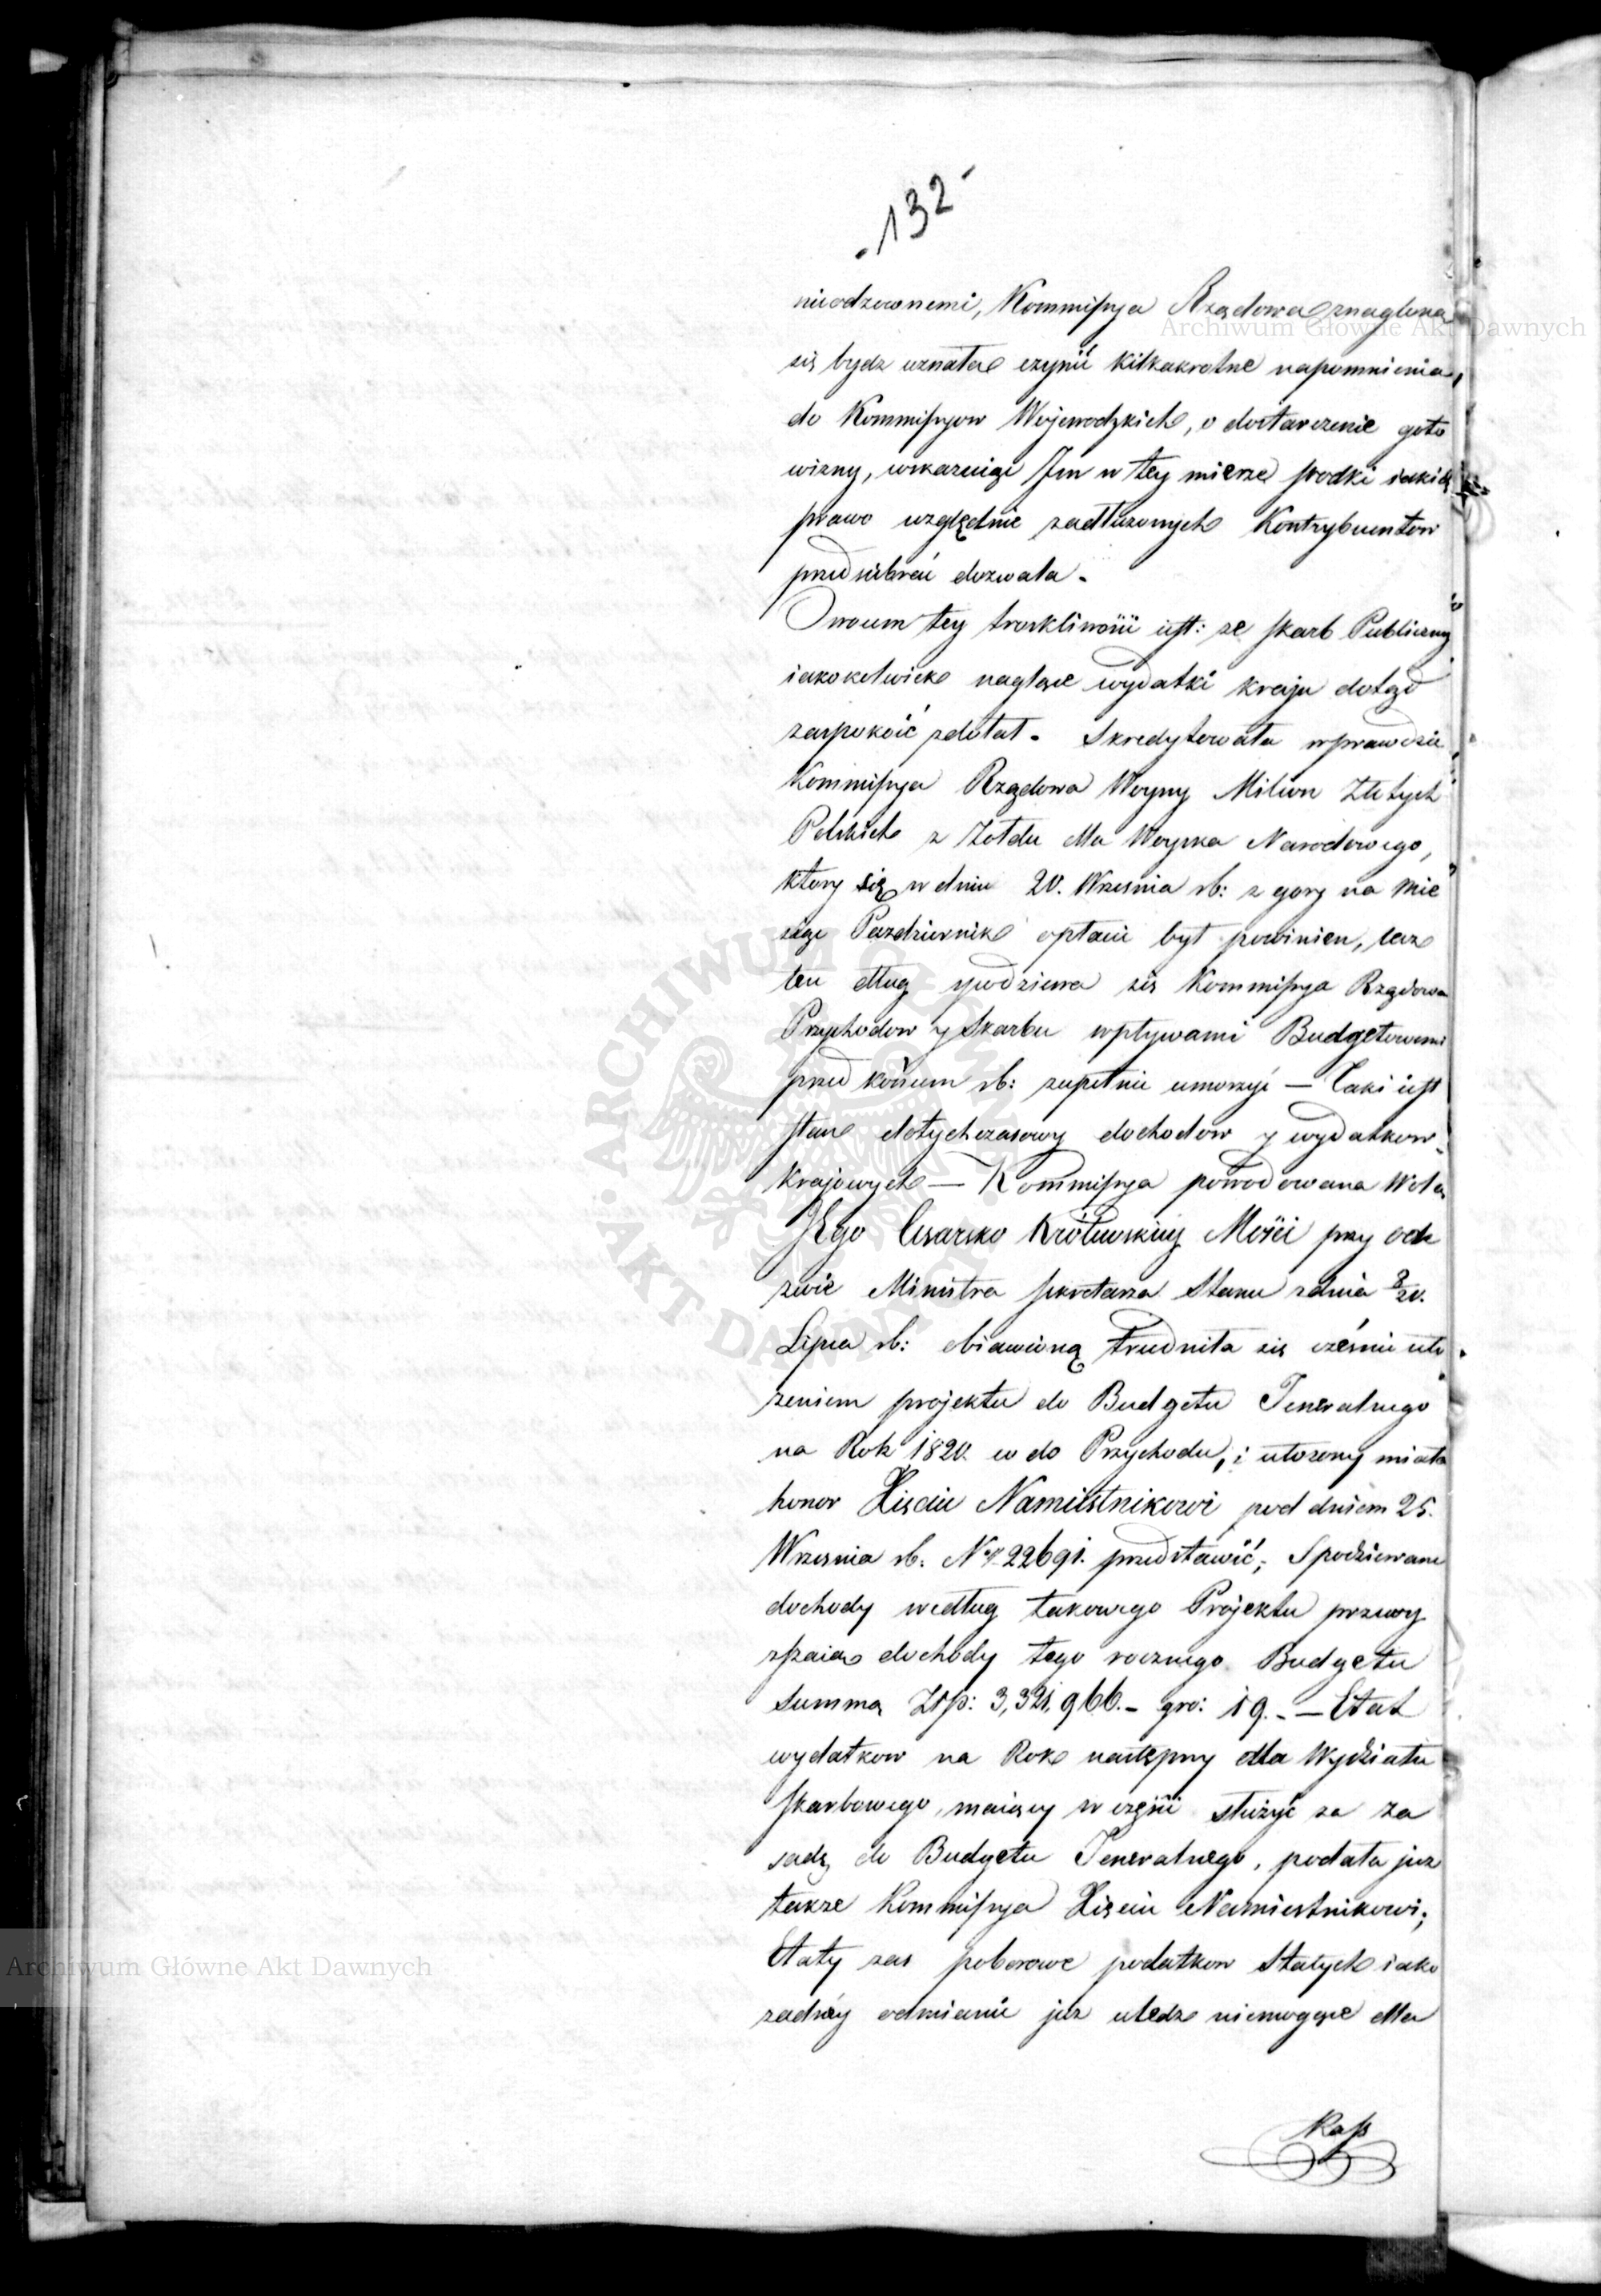 .132-
nieodzownemi, Kommissya Rządowa znagloną
się bydz uznała czynić kilkakrotne napomnienia,
do Kommissyow Woiewodzkich, o dostarczenie goto
wizny, wskazuiąc Im w tey mierze srodki iakich
prawo względnie zadłużonych Kontrybuentow
przedsiebrać dozwala.
Owocem tey troskliwości iest: ze skarb Publiczny
iakokolwiek naglące wydatki kraju dotąd
zaspokoić zdołał. Skredytowała wprawdzie
Kommissya Rządowa Woyny Milion Złotych
Polskich z Żołdu dla Woyska Narodowego,
ktory się w dniu 20. Wrzesnia rb: z gory na mie
siąc Pazdziernik opłacić był powinien, lecz
ten dług spodziewa się Kommissya Rządowa
Przychodow y Skarbu wpływami Budgetowemi
przed końcem rb: zupełnie umorzyć — Taki iest
stan dotychczasowy dochodow y wydatkow
Krajowych — Kommissya powodowana Wolą
JEgo Cesarsko Krolewskiey Mości przy ode
zwie Ministra Sekretarza Stanu z dnia 8/20.
Lipca rb: obiawioną trudniła się wcześnie uło
żeniem projektu do Budgetu Generalnego
na Rok 1820. co do Przychodu, i ułożony miała
honor Xięciu Namiestnikowi pod dniem 25.
Wrzesnia rb: No 22691. przedstawić; Spodziewane
dochody według takowego Projektu przewy
zszaią dochody tego rocznego Budgetu
Summą Złp: 3,321,966.- gro: 19.- — Etat
wydatkow na Rok następny dla Wydziału
Skarbowego, maiący w części służyć za za
sadę do Budgetu Generalnego, podała juz
także Kommissya Xięciu Namiestnikowi;
Etaty zas poborowe podatkow Stałych iako
zadney odmianie juz uledz niemogące dla
Kass
Archiwum Główne Akt Dawnych
Archiwum Główne Akt Dawnych
ARCHIWUM GŁÓWNE AKT DAWNYCH